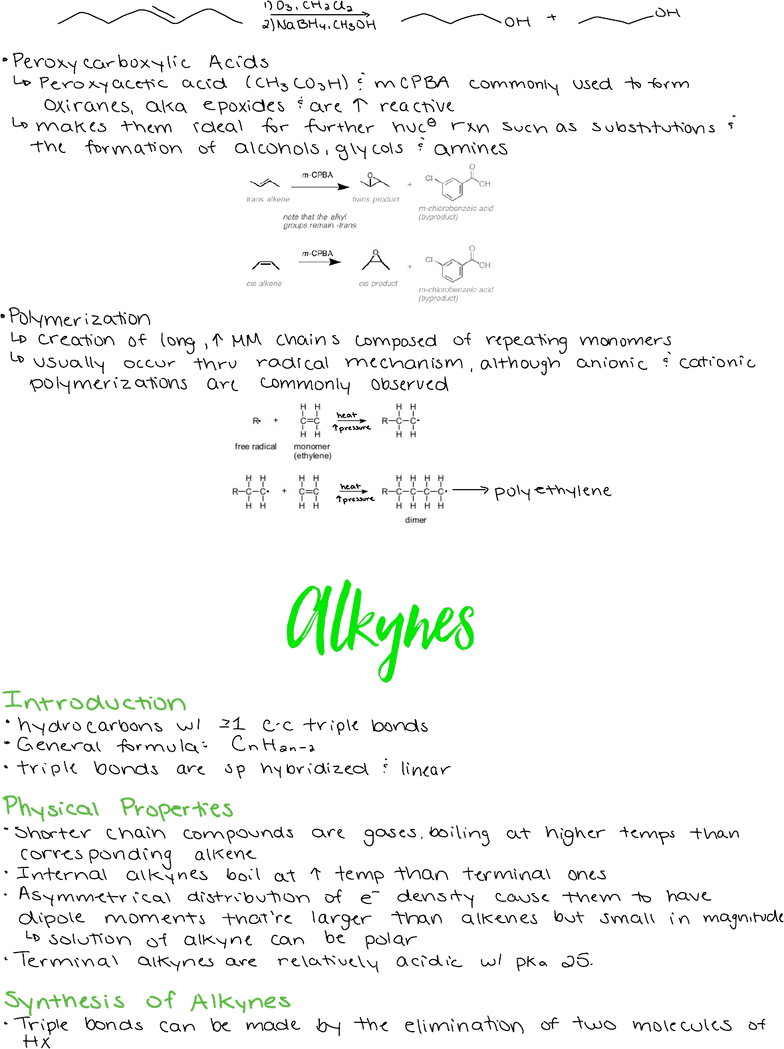 1) O3, CH2Cl2
2) NaBH4, CH3OH
OH + OH
• Peroxycarboxylic Acids
↳ Peroxyacetic acid (CH3CO3H) & mCPBA commonly used to form
oxiranes, aka epoxides & are ↑ reactive
↳ makes them ideal for further nuc⊖ rxn such as substitutions &
the formation of alcohols, glycols & amines
m-CPBA
O + Cl O OH
trans alkene trans product m-chlorobenzoic acid
(byproduct)
note that the alkyl
groups remain -trans
m-CPBA
O + Cl O OH
cis alkene cis product m-chlorobenzoic acid
(byproduct)
• Polymerization
↳ creation of long, ↑ MM chains composed of repeating monomers
↳ usually occur thru radical mechanism, although anionic & cationic
polymerizations are commonly observed
H H heat H H
R• + C=C ↑pressure R-C-C•
H H H H
free radical monomer
(ethylene)
H H H H heat H H H H
R-C-C• + C=C ↑pressure R-C-C-C-C• → polyethylene
H H H H H H H H
dimer
Alkynes
Introduction
• hydrocarbons w/ ≥1 C-C triple bonds
• General formula: CnH2n-2
• triple bonds are sp hybridized & linear
Physical Properties
• Shorter chain compounds are gases, boiling at higher temps than
corresponding alkene
• Internal alkynes boil at ↑ temp than terminal ones
• Asymmetrical distribution of e⁻ density cause them to have
dipole moments that're larger than alkenes but small in magnitude
↳ solution of alkyne can be polar
• Terminal alkynes are relatively acidic w/ pka 25.
Synthesis of Alkynes
• Triple bonds can be made by the elimination of two molecules of
HX